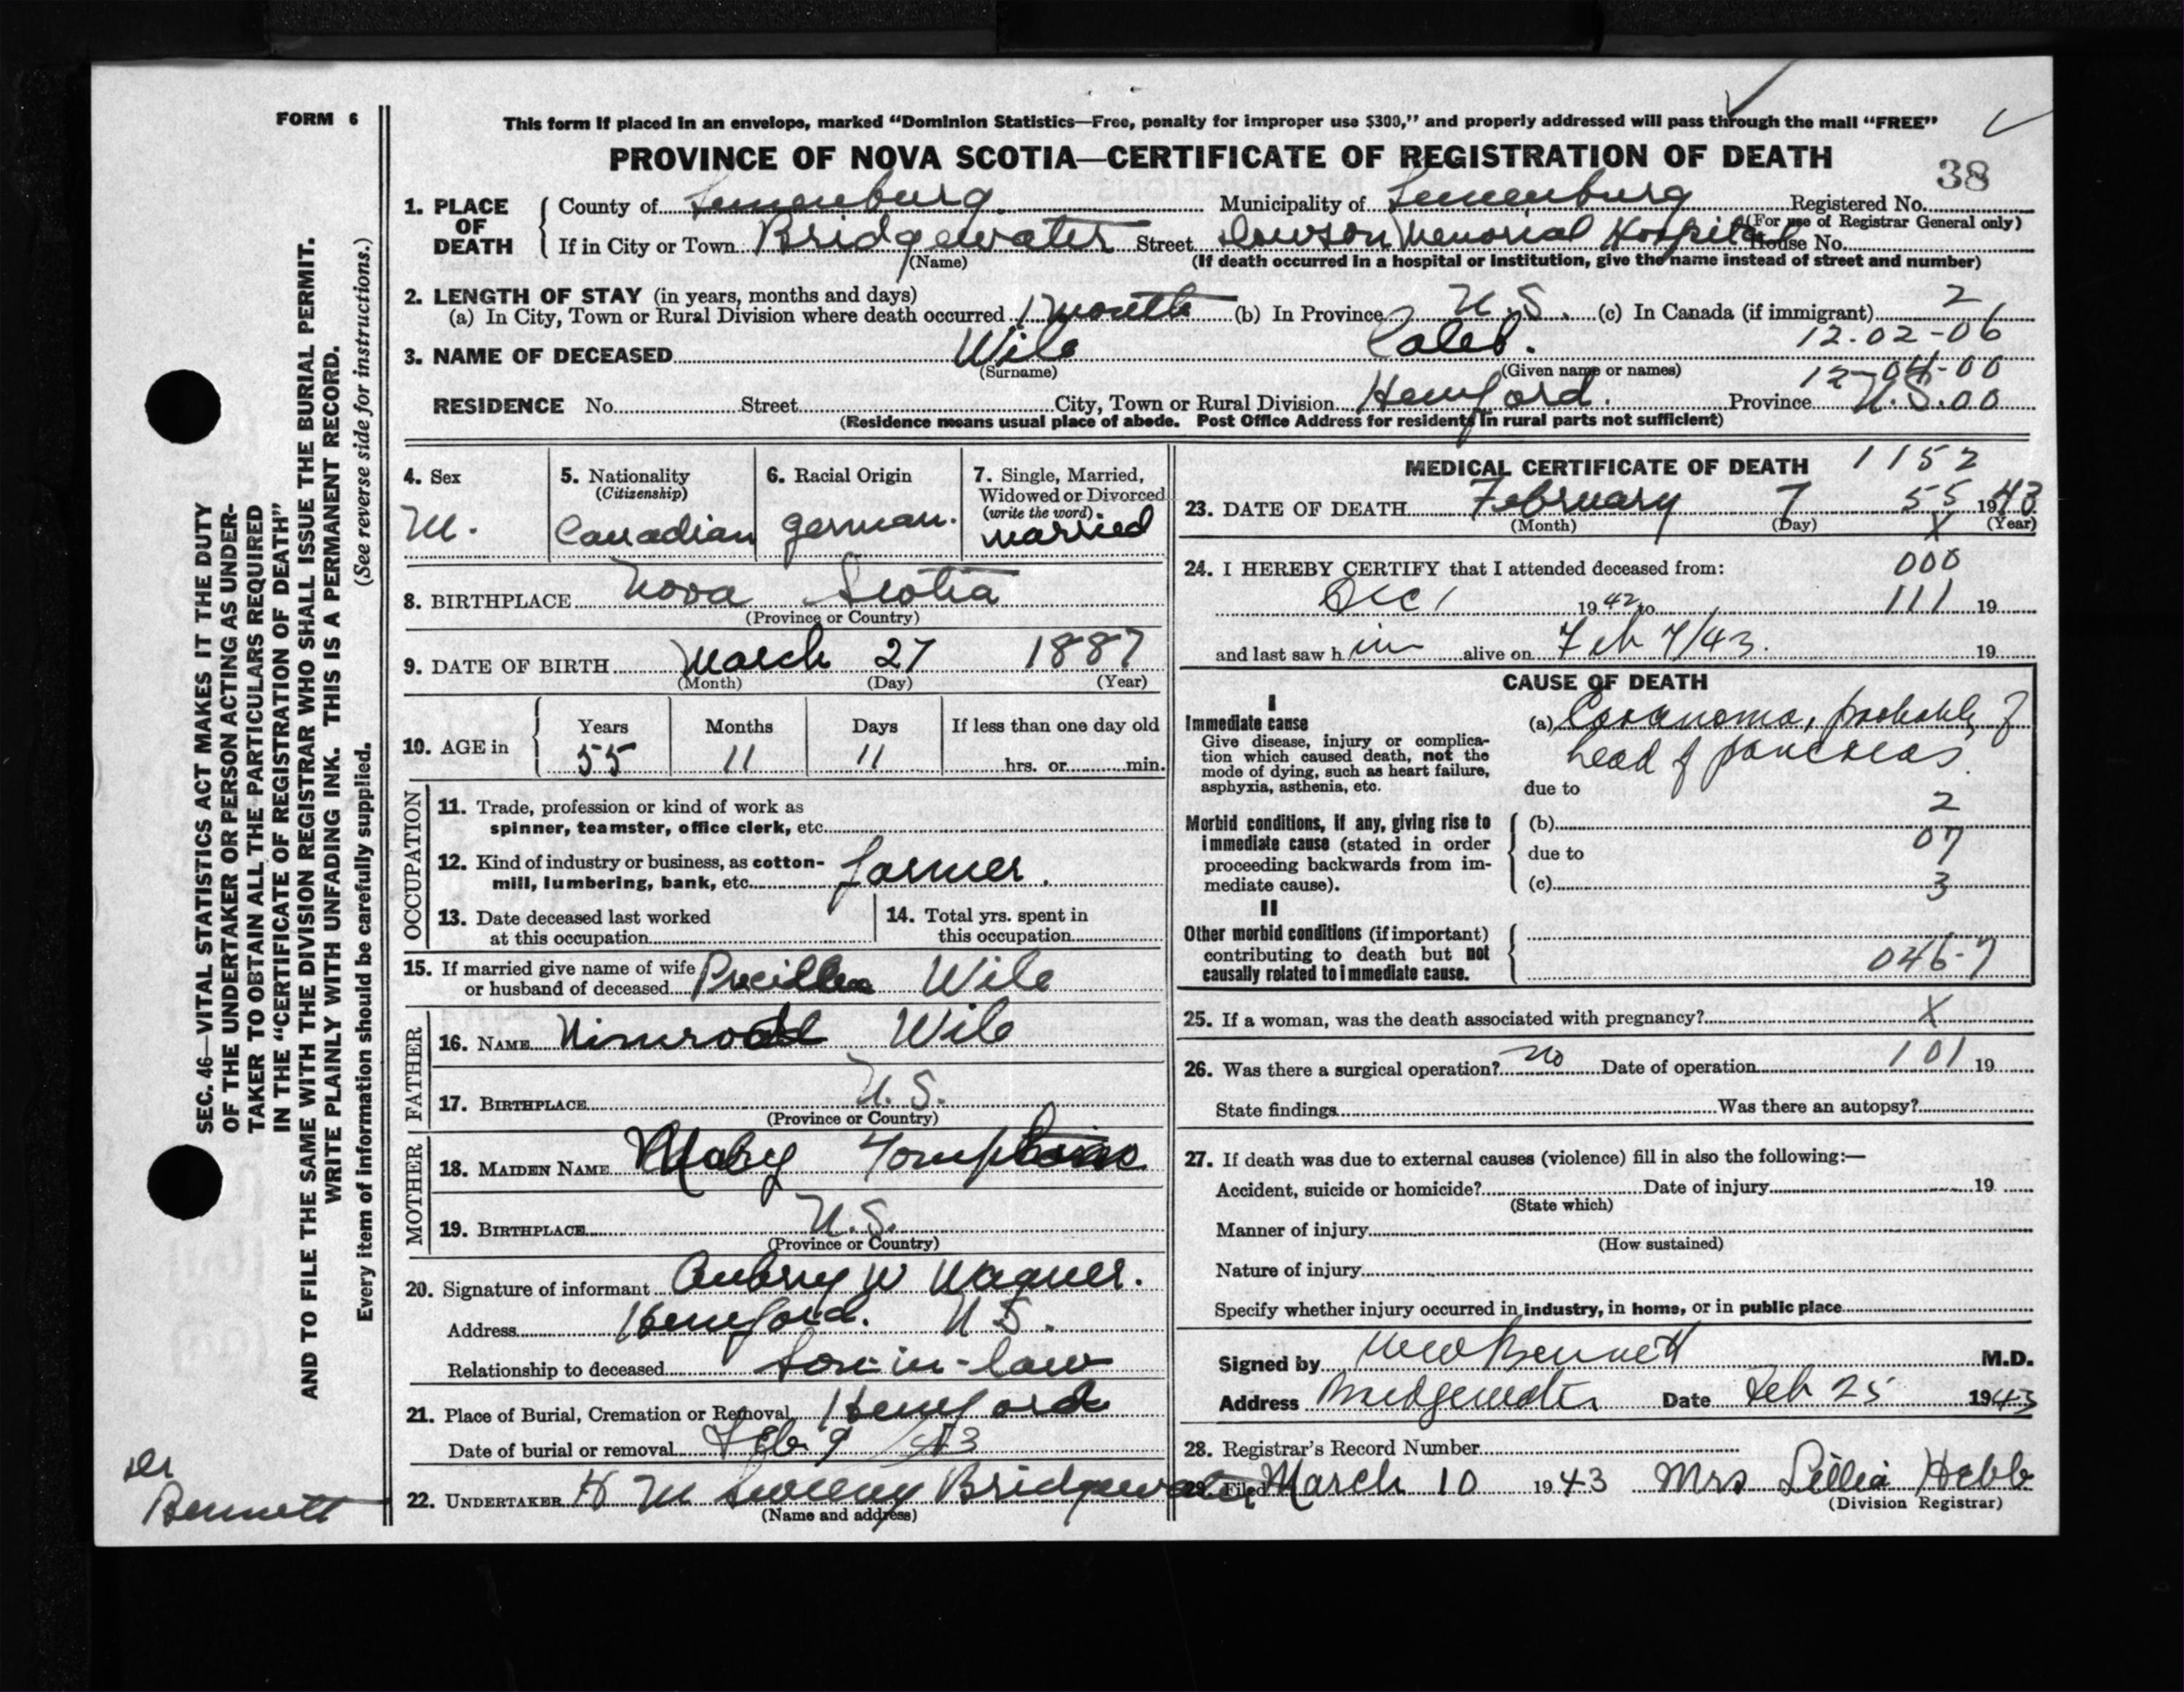 FORM 6
This form if placed in an envelope, marked “Dominion Statistics—Free, penalty for improper use $300,” and properly addressed will pass through the mail “FREE”
PROVINCE OF NOVA SCOTIA—CERTIFICATE OF REGISTRATION OF DEATH
38
1. PLACE OF DEATH { County of Lunenburg Municipality of Lunenburg Registered No.
(For use of Registrar General only)
If in City or Town Bridgewater Street Dawson Memorial Hospital House No.
(Name) (If death occurred in a hospital or institution, give the name instead of street and number)
2. LENGTH OF STAY (in years, months and days)
(a) In City, Town or Rural Division where death occurred 1 month (b) In Province N.S. (c) In Canada (if immigrant) 2
12-02-06
3. NAME OF DECEASED Wile Caleb.
(Surname) (Given name or names) 12-04-00
RESIDENCE No. Street City, Town or Rural Division Hemford. Province N.S.00
(Residence means usual place of abode. Post Office Address for residents in rural parts not sufficient)
4. Sex M.
5. Nationality (Citizenship) Canadian
6. Racial Origin German.
7. Single, Married, Widowed or Divorced (write the word) married
8. BIRTHPLACE Nova Scotia
(Province or Country)
9. DATE OF BIRTH March 27 1887
(Month) (Day) (Year)
10. AGE in { Years Months Days If less than one day old
55 11 11 hrs. or min.
OCCUPATION
11. Trade, profession or kind of work as
spinner, teamster, office clerk, etc.
12. Kind of industry or business, as cotton-
mill, lumbering, bank, etc. farmer.
13. Date deceased last worked
at this occupation
14. Total yrs. spent in
this occupation
15. If married give name of wife
or husband of deceased Precilla Wile
FATHER
16. NAME Nimrod Wile
17. BIRTHPLACE N.S.
(Province or Country)
MOTHER
18. MAIDEN NAME Mary Tompkins
19. BIRTHPLACE N.S.
(Province or Country)
20. Signature of informant Aubrey W Wagner.
Address Hemford. N S.
Relationship to deceased Son-in-law
21. Place of Burial, Cremation or Removal Hemford
Date of burial or removal Feb 9 /43
22. UNDERTAKER H M Sweeny Bridgewater
(Name and address)
MEDICAL CERTIFICATE OF DEATH 1152
23. DATE OF DEATH February 7 55 1943
(Month) (Day) X (Year)
24. I HEREBY CERTIFY that I attended deceased from: 000
Dec 1 1942 to 111 19
and last saw him alive on Feb 7/43. 19
CAUSE OF DEATH
I
Immediate cause
Give disease, injury or complica-
tion which caused death, not the
mode of dying, such as heart failure,
asphyxia, asthenia, etc.
(a) Carcinoma, probably of
head of pancreas.
due to
Morbid conditions, if any, giving rise to
immediate cause (stated in order
proceeding backwards from im-
mediate cause).
(b) 2
due to 07
(c) 3
II
Other morbid conditions (if important)
contributing to death but not
causally related to immediate cause.
046-7
25. If a woman, was the death associated with pregnancy? X
26. Was there a surgical operation? no Date of operation 101 19
State findings Was there an autopsy?
27. If death was due to external causes (violence) fill in also the following:—
Accident, suicide or homicide? Date of injury 19
(State which)
Manner of injury
(How sustained)
Nature of injury
Specify whether injury occurred in industry, in home, or in public place
Signed by Bennett M.D.
Address Bridgewater Date Feb 25 1943
28. Registrar’s Record Number
29. Filed March 10 1943 Mrs Lillia Hebb
(Division Registrar)
SEC. 46—VITAL STATISTICS ACT MAKES IT THE DUTY
OF THE UNDERTAKER OR PERSON ACTING AS UNDER-
TAKER TO OBTAIN ALL THE PARTICULARS REQUIRED
IN THE “CERTIFICATE OF REGISTRATION OF DEATH”
AND TO FILE THE SAME WITH THE DIVISION REGISTRAR WHO SHALL ISSUE THE BURIAL PERMIT.
WRITE PLAINLY WITH UNFADING INK. THIS IS A PERMANENT RECORD.
Every item of information should be carefully supplied. (See reverse side for instructions.)
Dr
Bennett